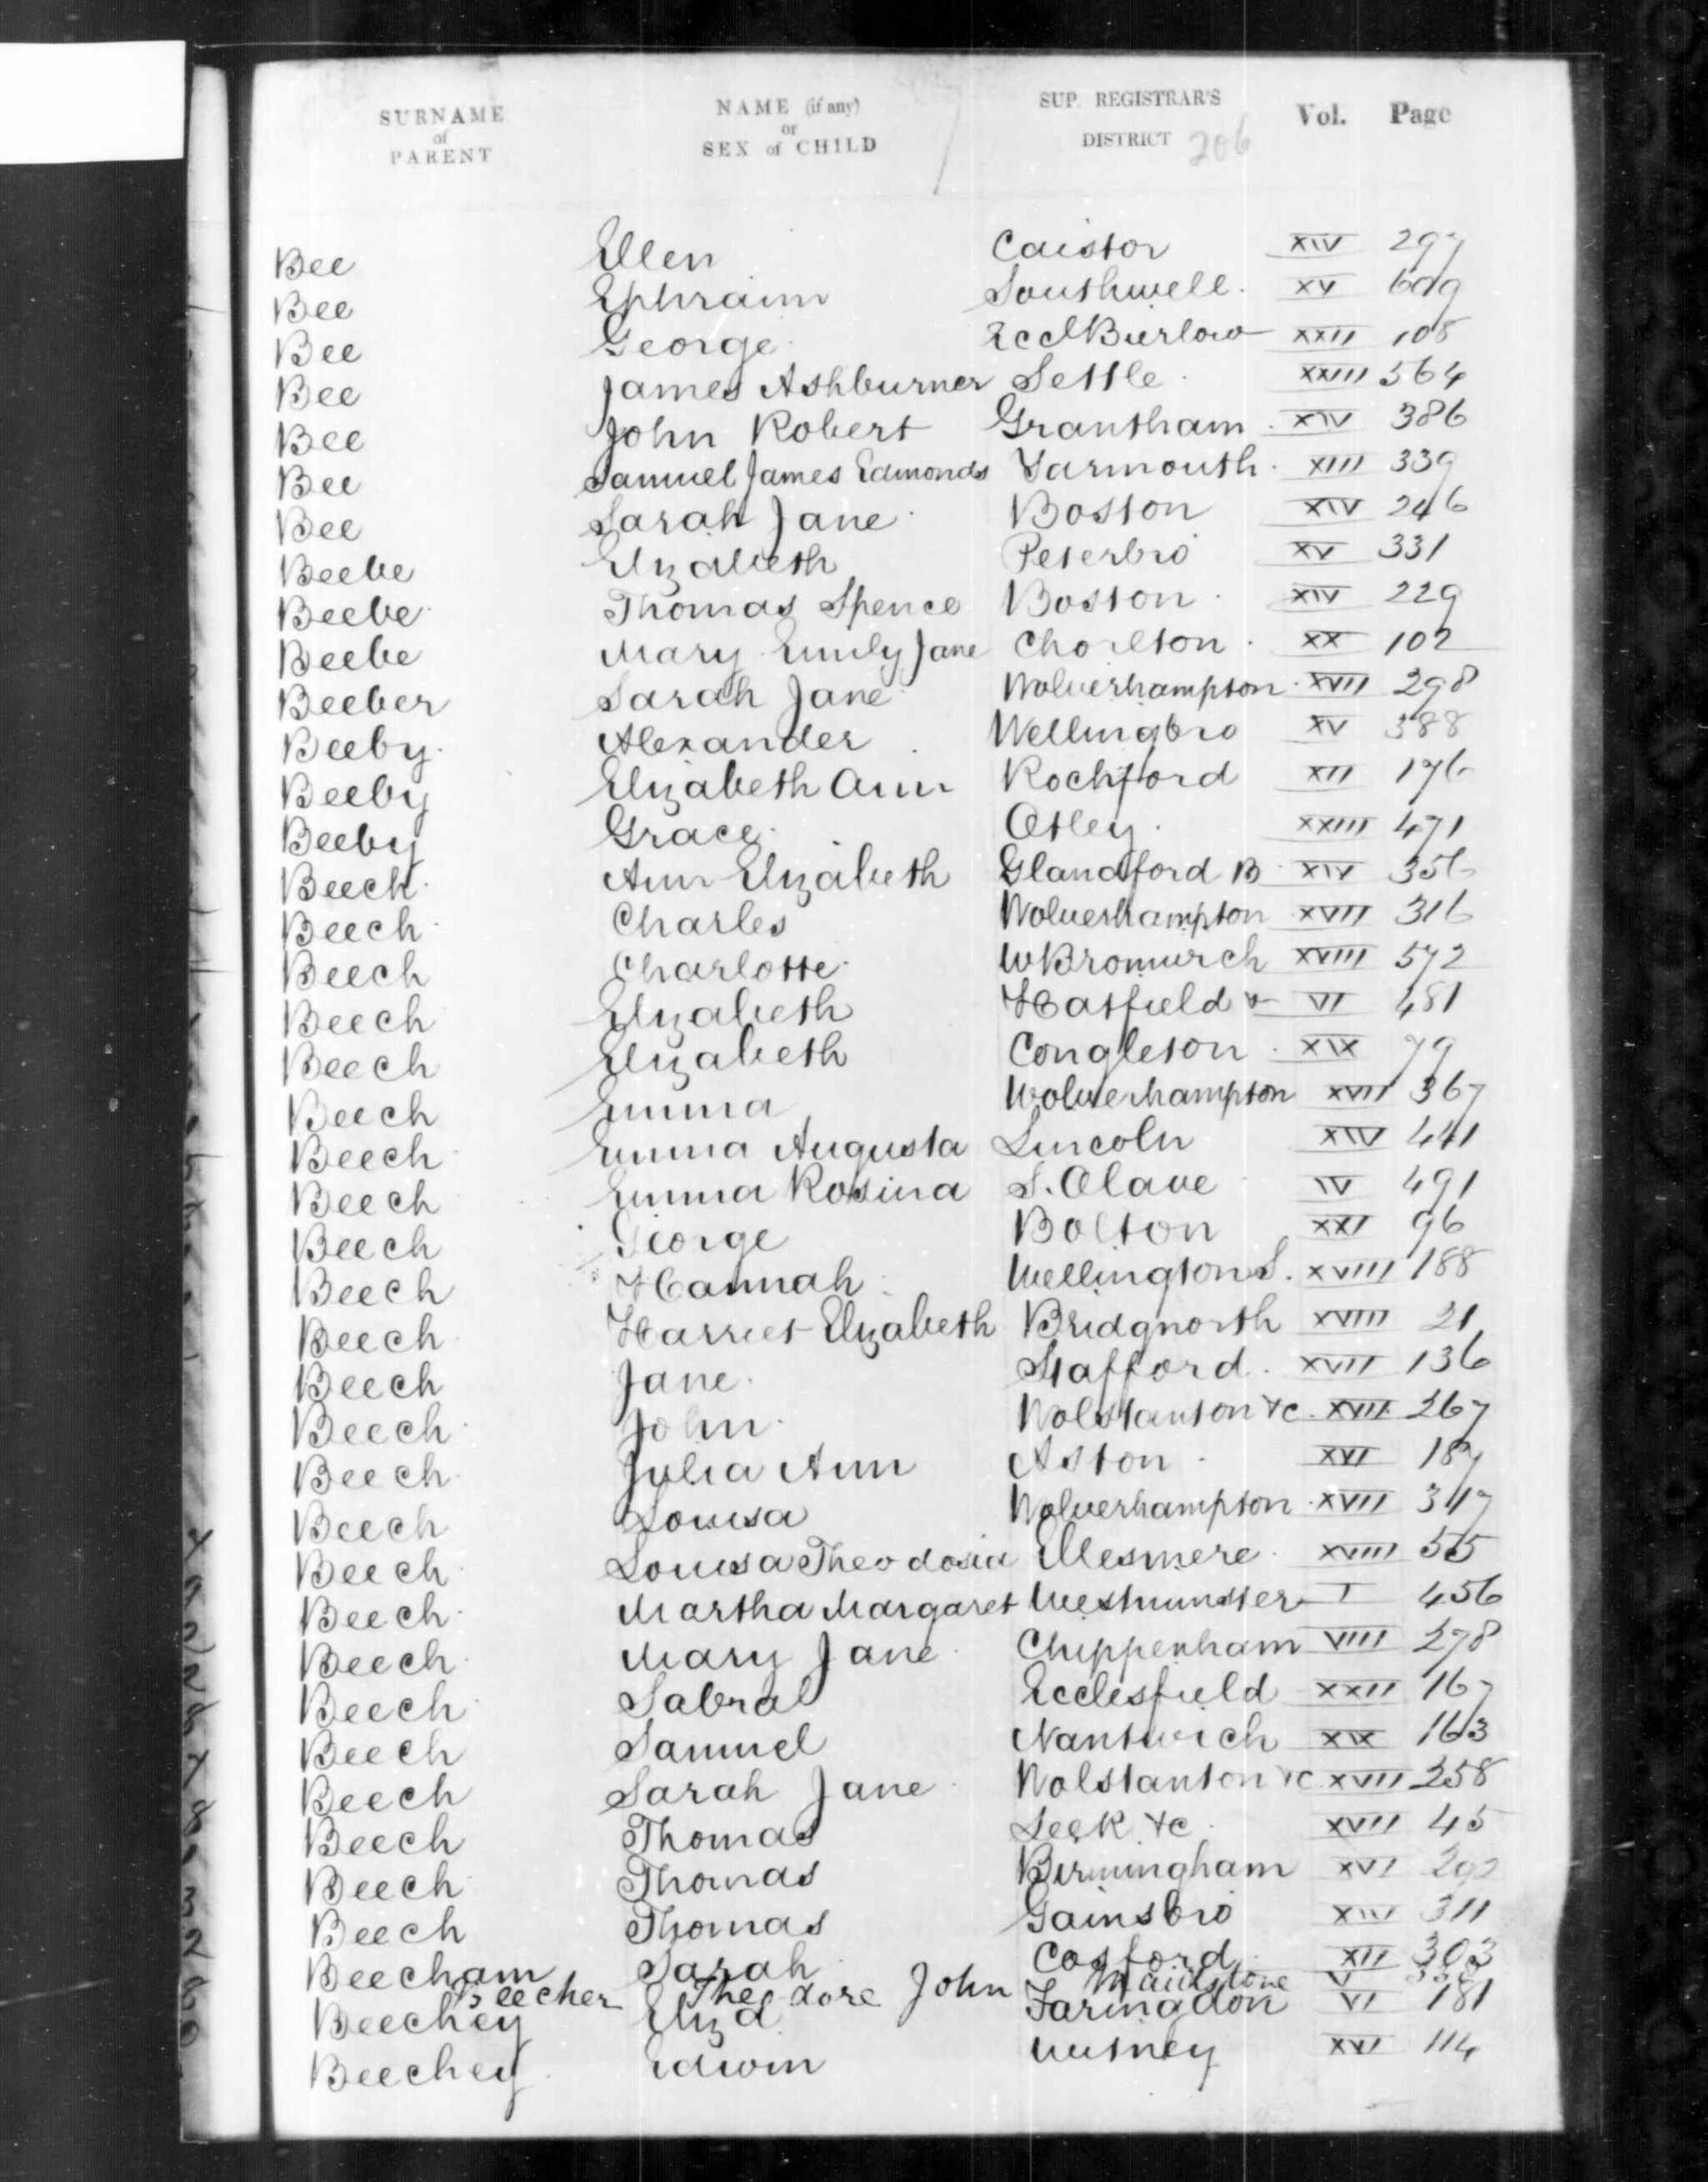 SURNAME of PARENT NAME (if any) or SEX of CHILD SUP. REGISTRAR'S DISTRICT 206 Vol. Page
Bee Ellen Caistor XIV 297
Bee Ephraim Southwell XV 609
Bee George Eccl Bierlow XXII 108
Bee James Ashburner Settle XXIII 564
Bee John Robert Grantham XIV 386
Bee Samuel James Edmonds Yarmouth XIII 339
Bee Sarah Jane Boston XIV 246
Beebe Elizabeth Peterbro XV 331
Beebe Thomas Spence Boston XIV 229
Beebe Mary Emily Jane Chorlton XX 102
Beeber Sarah Jane Wolverhampton XVII 298
Beeby Alexander Wellingbro XV 388
Beeby Elizabeth Ann Rochford XII 176
Beeby Grace Otley XXIII 471
Beech Ann Elizabeth Glandford B XIV 356
Beech Charles Wolverhampton XVII 316
Beech Charlotte W Bromwich XVIII 572
Beech Elizabeth Hatfield VI 481
Beech Elizabeth Congleton XIX 79
Beech Emma Wolverhampton XVII 367
Beech Emma Augusta Lincoln XIV 441
Beech Emma Rosina S. Olave IV 491
Beech George Bolton XXI 96
Beech Hannah Wellington S. XVIII 188
Beech Harriet Elizabeth Bridgnorth XVIII 21
Beech Jane Stafford XVII 136
Beech John Wolstanton &c XVII 267
Beech Julia Ann Aston XVI 187
Beech Louisa Wolverhampton XVII 317
Beech Louisa Theodosia Ellesmere XVIII 55
Beech Martha Margaret Westminster I 456
Beech Mary Jane Chippenham VIII 278
Beech Sabral Ecclesfield XXII 167
Beech Samuel Nantwich XIX 163
Beech Sarah Jane Wolstanton &c XVII 258
Beech Thomas Leek &c XVII 45
Beech Thomas Birmingham XVI 292
Beech Thomas Gainsbro XIV 311
Beecham Sarah Cosford XII 303
Beecher Theodore John Maidstone V
Beechey Eliza Faringdon VI 181
Beechey Edwin Witney XVI 114